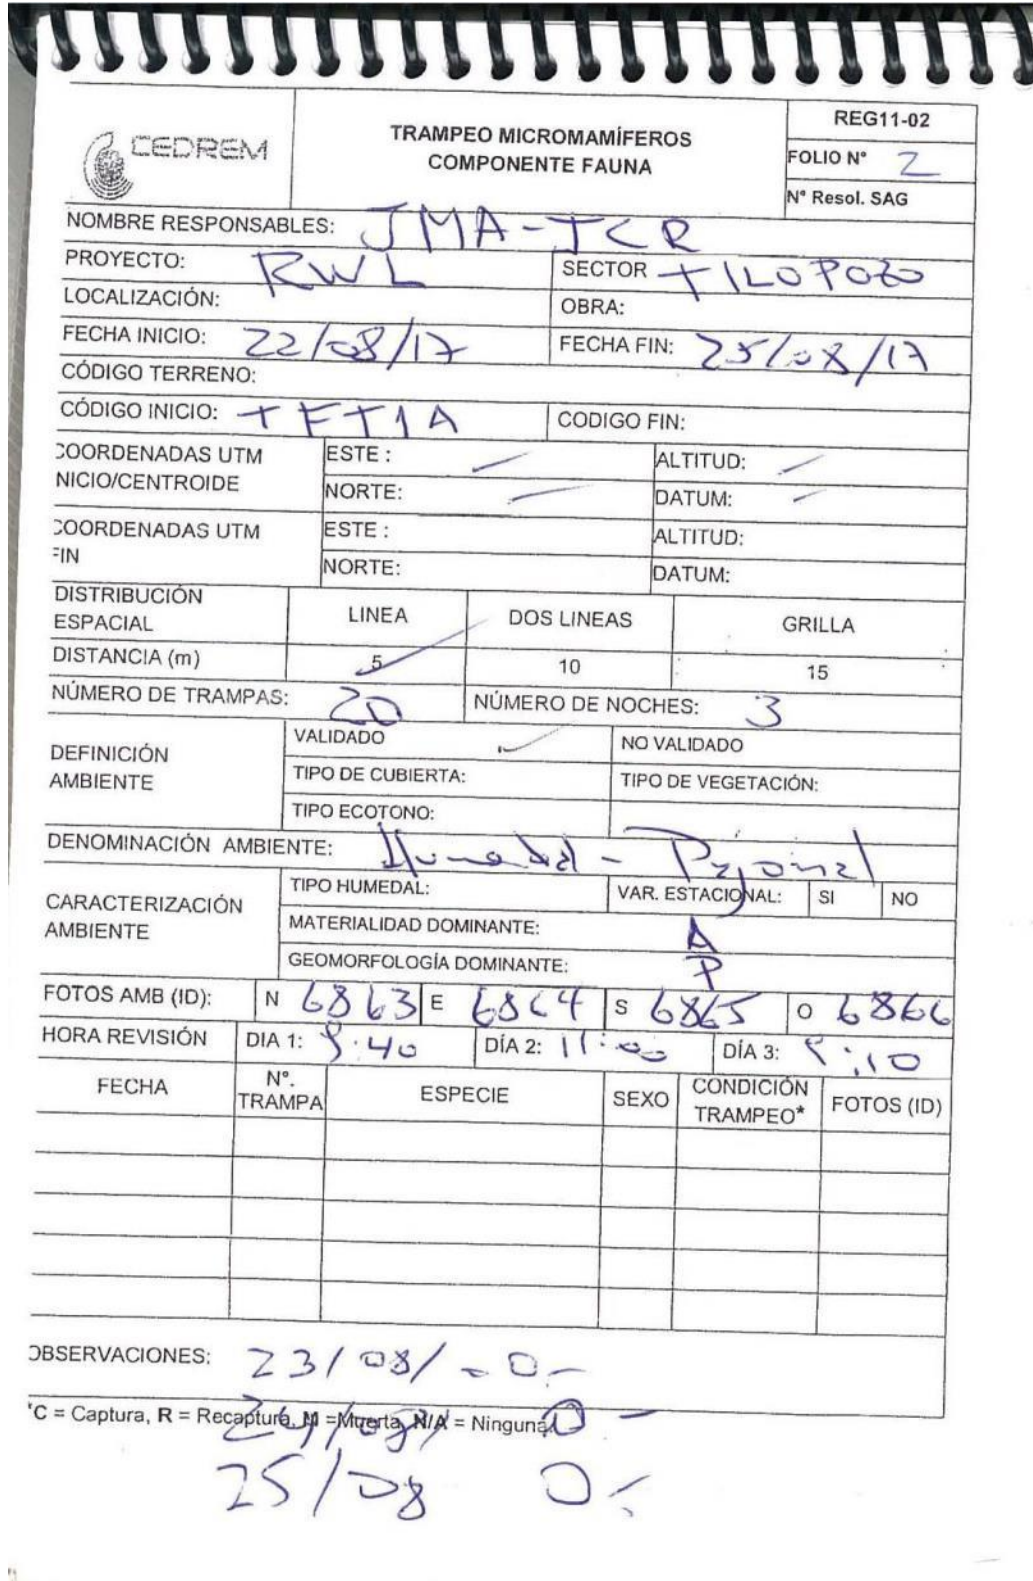 CEDREM
TRAMPEO MICROMAMÍFEROS
COMPONENTE FAUNA
REG11-02
FOLIO N° 2
N° Resol. SAG
NOMBRE RESPONSABLES: JMA-JCR
PROYECTO: RWL
SECTOR TILOPOZO
LOCALIZACIÓN:
OBRA:
FECHA INICIO: 22/08/17
FECHA FIN: 25/08/17
CÓDIGO TERRENO:
CÓDIGO INICIO: TFT1A
CODIGO FIN:
COORDENADAS UTM
NICIO/CENTROIDE
ESTE :
ALTITUD:
NORTE:
DATUM:
COORDENADAS UTM
FIN
ESTE :
ALTITUD:
NORTE:
DATUM:
DISTRIBUCIÓN
ESPACIAL
LINEA
DOS LINEAS
GRILLA
DISTANCIA (m)
5
10
15
NÚMERO DE TRAMPAS: 20
NÚMERO DE NOCHES: 3
DEFINICIÓN
AMBIENTE
VALIDADO
NO VALIDADO
TIPO DE CUBIERTA:
TIPO DE VEGETACIÓN:
TIPO ECOTONO:
DENOMINACIÓN AMBIENTE: Humedal - Pajonal
CARACTERIZACIÓN
AMBIENTE
TIPO HUMEDAL:
VAR. ESTACIONAL: SI NO
MATERIALIDAD DOMINANTE: A
GEOMORFOLOGÍA DOMINANTE: P
FOTOS AMB (ID): N 6863 E 6864 S 6865 O 6866
HORA REVISIÓN DIA 1: 9:40 DÍA 2: 11:00 DÍA 3: 9:10
FECHA
N°.
TRAMPA
ESPECIE
SEXO
CONDICIÓN
TRAMPEO*
FOTOS (ID)
OBSERVACIONES: 23/08/ - 0.-
*C = Captura, R = Recaptura, M =Muerta, N/A = Ninguna.
24/08/ 0 -
25/08 0.-